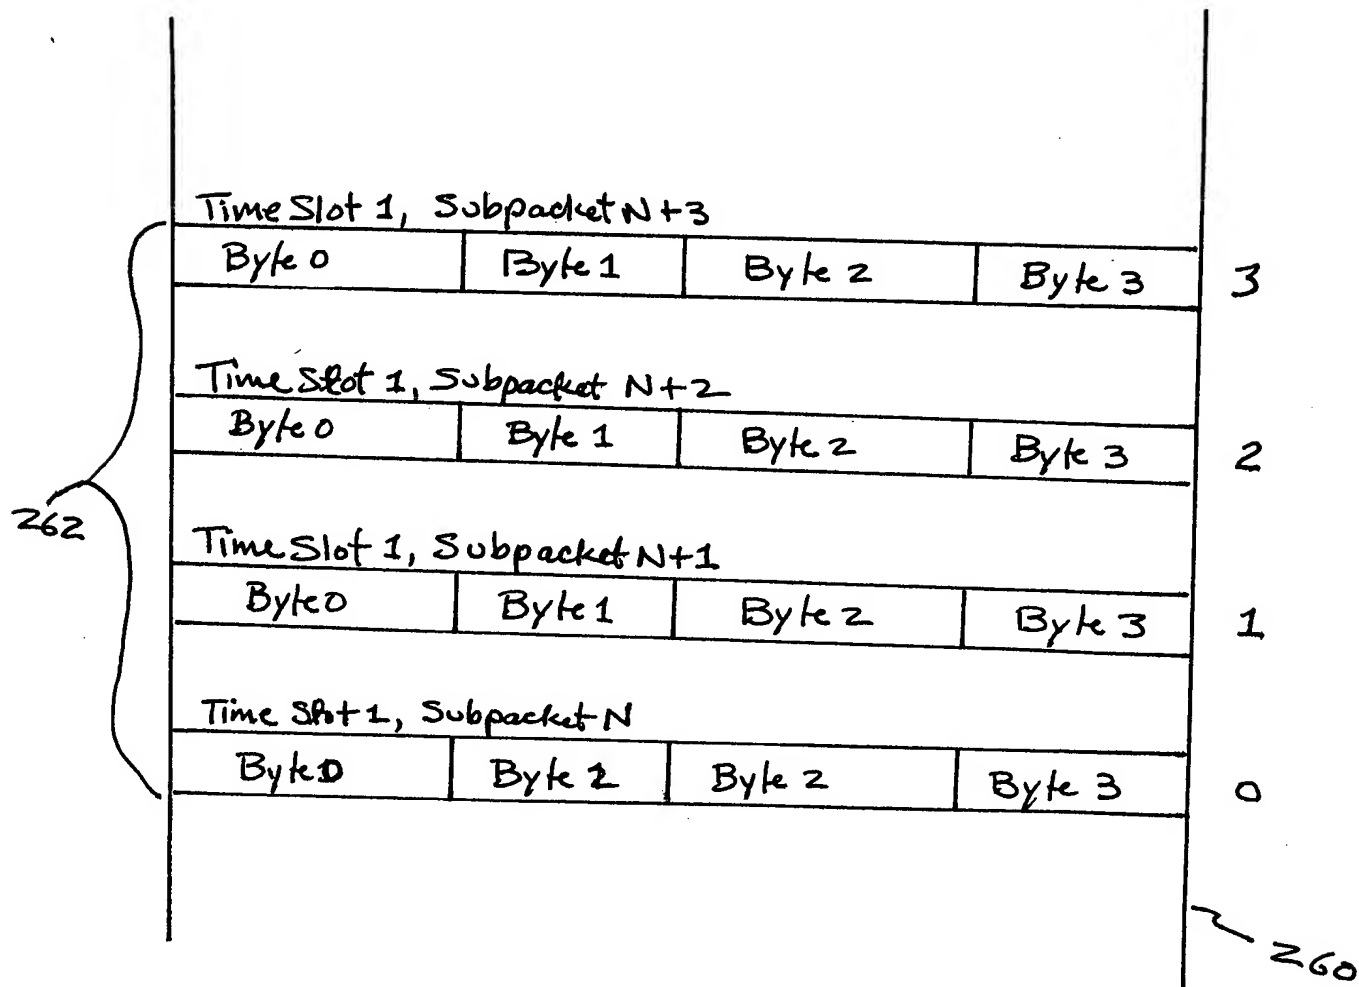 Time Slot 1, Subpacket N+3
Byte 0 Byte 1 Byte 2 Byte 3 3
Time Slot 1, Subpacket N+2
Byte 0 Byte 1 Byte 2 Byte 3 2
262
Time Slot 1, Subpacket N+1
Byte 0 Byte 1 Byte 2 Byte 3 1
Time Slot 1, Subpacket N
Byte 0 Byte 1 Byte 2 Byte 3 0
260